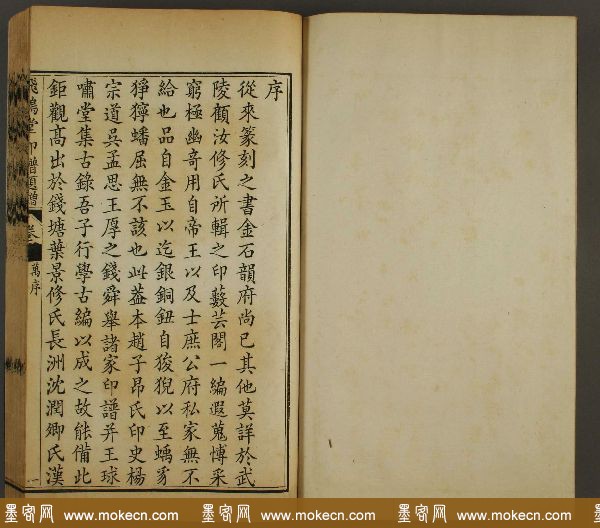 序
從來篆刻之書金石韻府尚已其他莫詳於武
陵顧汝修氏所輯之印藪芸閣一編遐蒐博采
窮極幽奇用自帝王以及士庶公府私家無不
給也品自金玉以迄銀銅鈕自狻猊以至螭豸
猙獰蟠屈無不該也此葢本趙子昂氏印史楊
宗道吳孟思王厚之錢舜舉諸家印譜并王球
嘯堂集古錄吾子行學古編以成之故能備此
鉅觀高出於錢塘葉景修氏長洲沈潤卿氏漢
飛鴻堂印譜 卷 萬序 一
墨客网 www.mokecn.com 墨客网 www.mokecn.com 墨客网 www.mokecn.com 墨客网 www.mokecn.com